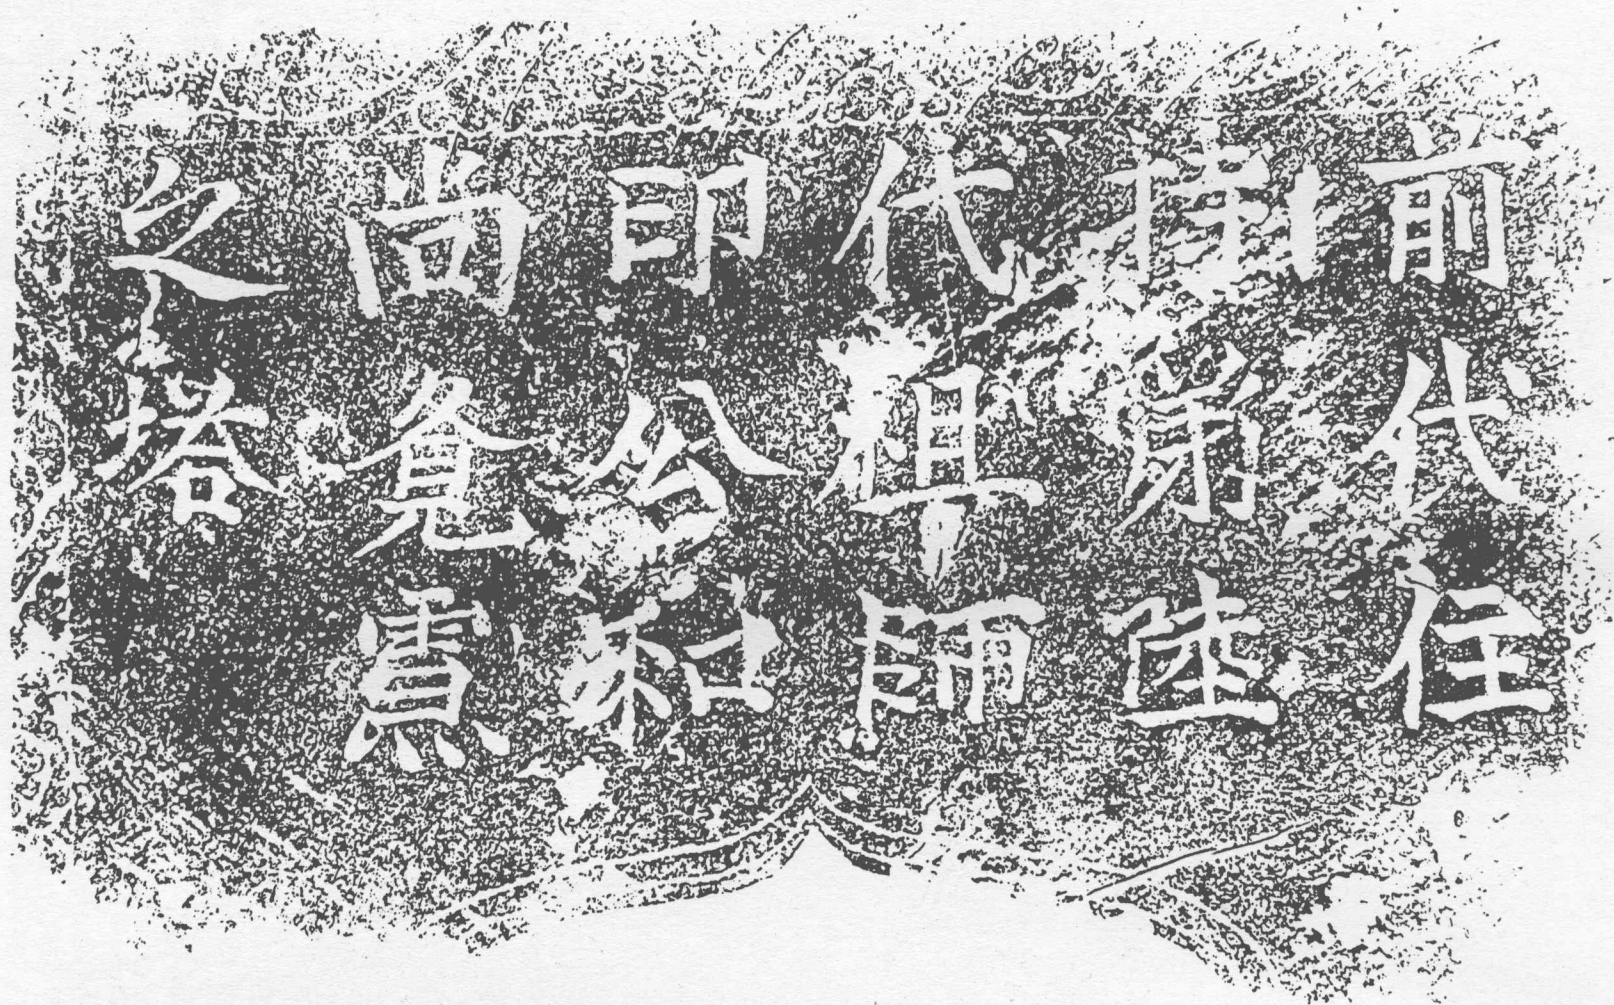 前代住
持第陸
代祖師
印公和
尚覺靈
之塔